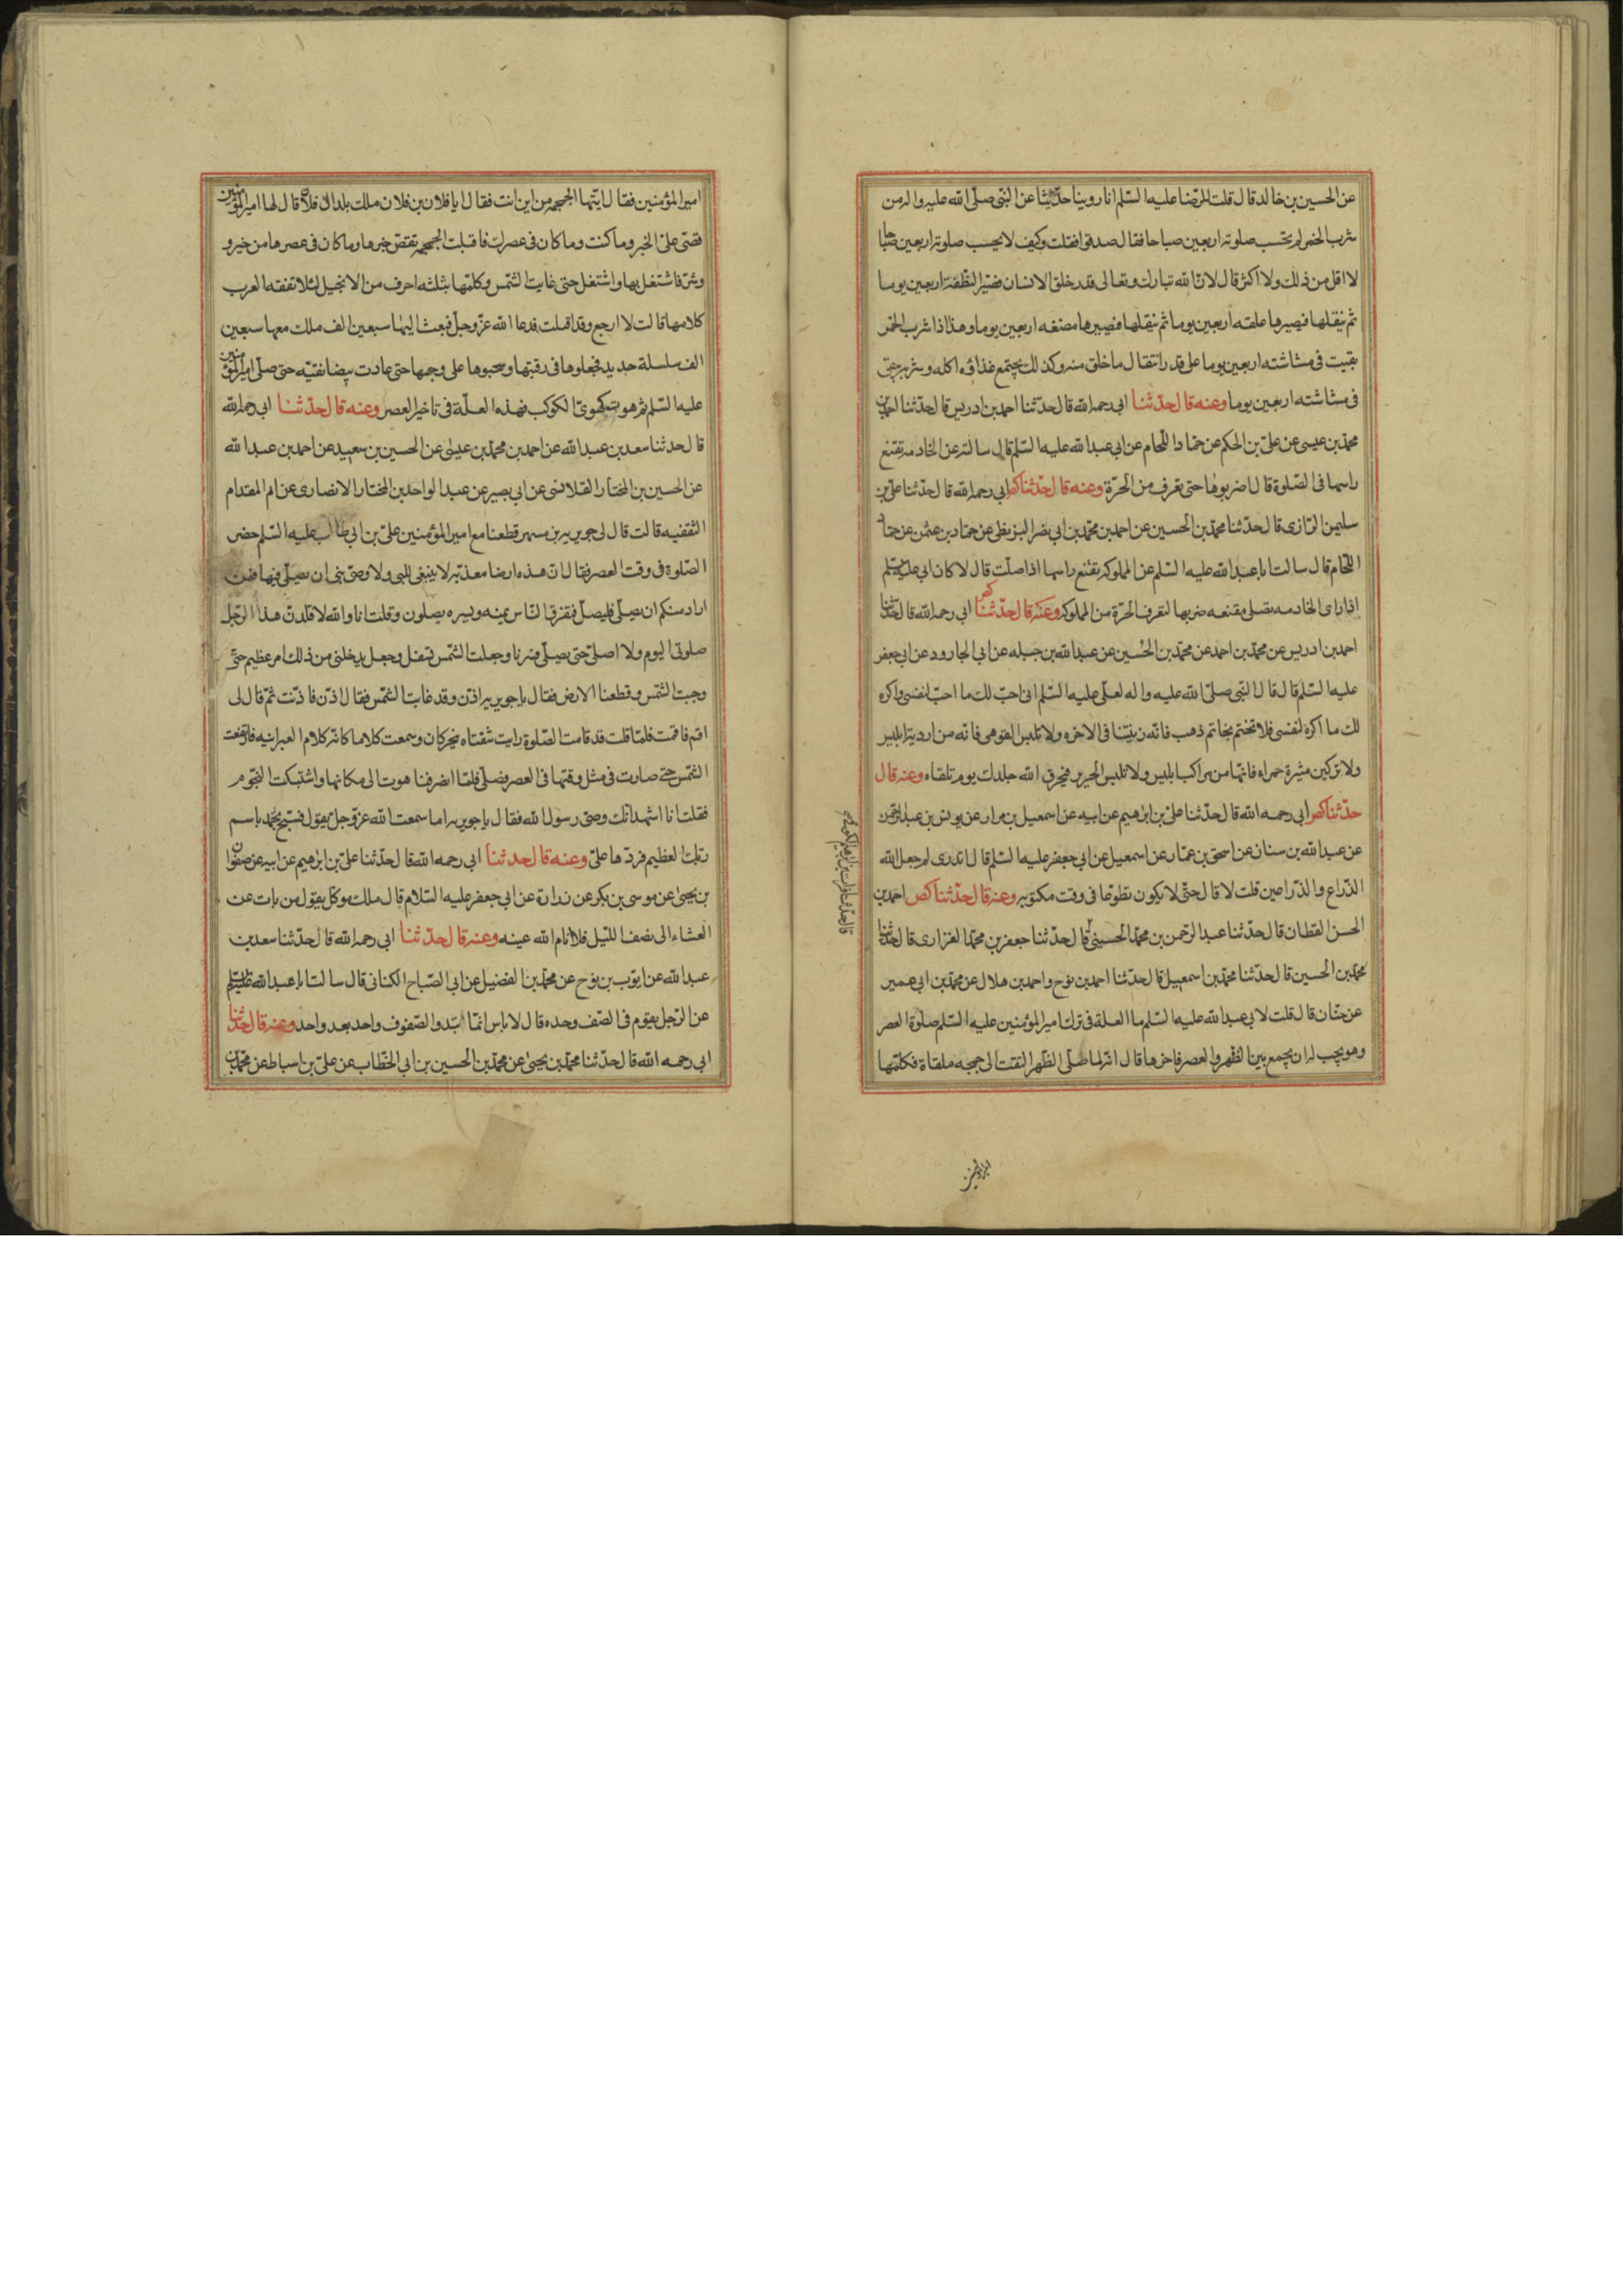 عن الحسين بن خالد قال قلت للرضا عليه السلم انا روينا حديثا عن النبي صلى الله عليه واله من
شرب الخمر لم تحتسب صلوته اربعين صباحا فقال صدقوا فقلت وكيف لا يحسب صلوته اربعين صباحا
لا اقل من ذلك ولا اكثر قال لان الله تبارك وتعالى قدر خلق الانسان فصير النطفة اربعين يوما
ثم ينقلها فيصيرها علقه اربعين يوما ثم ينقلها فيصيرها مضغه اربعين يوما وهذا اذا شرب الخمر
بقيت في مشاشته اربعين يوما على قدر انتقال ما خلق منه وكذلك يجتمع غذاؤه اكله وشربه تبقى
في مشاشته اربعين يوما وعنه قال حدثنا ابي رحمه الله قال حدثنا احمد بن ادريس قال حدثنا احمد بن
محمد بن عيسى عن على بن الحكم عن حماد اللحام عن ابي عبد الله عليه السلم قال سالته عن الخادمه تقنع
راسها في الصلوة قال اضربوها حتى تعرف من الحرة وعنه قال حدثنا ابي رحمه الله قال حدثنا على بن
سليمن الرازى قال حدثنا محمد بن الحسين عن احمد بن محمد بن ابي نصر البزنطى عن حماد بن عثمن عن حماد
اللحام قال سالت ابا عبد الله عليه السلم عن المملوكه تقنع راسها اذا صلت قال لا كان ابي عليه السلم
اذا راى الخادمه تصلى مقنعه ضربها لتعرف الحرة من المملوكه وعنه قال حدثنا ابي رحمه الله قال حدثنا
احمد بن ادريس عن محمد بن احمد عن محمد بن الحسين عن عبد الله بن جبله عن ابي الجارود عن ابي جعفر
عليه السلم قال قال النبي صلى الله عليه واله لعلى عليه السلم انى احب لك ما احب لنفسى واكره
لك ما اكره لنفسى فلا تختم بخاتم ذهب فانه زينتنا فى الاخره ولا تلبس القرمى فانه من اردية ابليس
ولا تركبن مثيرة حمراء فانها من مراكب ابليس ولا تلبس الحرير فيحرق الله جلدك يوم تلقاه وعنه قال
حدثنا ابي رحمه الله قال حدثنا على بن ابرهيم عن ابيه عن اسمعيل بن مرار عن يونس بن عبد الرحمن
عن عبد الله بن سنان عن اسحق بن عمار عن اسمعيل عن ابي جعفر عليه السلم قال اتدرى لم جعل الله
الذراع والذراعين قلت لا قال حتى لا يكون تطوعا فى وقت مكتوبه وعنه قال حدثنا احمد بن
الحسن القطان قال حدثنا عبد الرحمن بن محمد الحسينى قال حدثنا جعفر بن محمد الفزارى قال حدثنا
محمد بن الحسين قال حدثنا محمد بن اسمعيل قال حدثنا احمد بن نوح واحمد بن هلال عن محمد بن ابي عمير
عن حنان قال قلت لابي عبد الله عليه السلم ما العلة فى ترك امير المؤمنين عليه السلم صلوة العصر
وهو يجب له ان يجمع بين الظهر والعصر فاخرها قال انه لما صلى الظهر التفت الى جمجمه ملقاة فكلمها
امير المؤمنين فقال ايتها الجمجمه من اين انت فقال انا فلان بن فلان ملك بلد ال فلان قال لها امير المؤمنين
فقصى على الخبر وما كنت وما كان فى عصرك فاقبلت الجمجمه تقص خبرها وما كان فى عصرها من خير و
وشر فاشتغل بها واشتغل حتى غابت الشمس وكلمها بثلثه احرف من الانجيل لئلا تفقه العرب
كلامها قالت لا ارجع وقد افلت فدعا الله عز وجل فبعث اليها سبعين الف ملك معها سبعين
الف سلسلة حديد فجعلوها فى رقبتها وسحبوها على وجهها حتى عادت بيضا نقيه حتى صلى امير المؤمنين
عليه السلم ثم هوت كهوى الكوكب فهذه العلة فى تاخير العصر وعنه قال حدثنا ابي رحمه الله
قال حدثنا سعد بن عبد الله عن احمد بن محمد بن عيسى عن الحسين بن سعيد عن احمد بن عبد الله
عن الحسين بن المختار القلانسى عن ابي بصير عن عبد الواحد بن المختار الانصارى عن ام المقدام
الثقفيه قالت قال لى جويريه بن مسهر قطعنا مع امير المؤمنين على بن ابي طالب عليه السلم حضر
الصلوة فى وقت العصر فقال ان هذه ارضا معذبه لا ينبغى للنبى ولا وصى نبى ان يصلى فيها فمن
اراد منكم ان يصلى فليصل فتفرق الناس يمينه ويسره يصلون وقلت انا والله لاقلدن هذا الرجل
صلوتى اليوم ولا اصلى حتى يصلى فسرنا وجعلت الشمس تسفل وجعل يدخلنى من ذلك امر عظيم حتى
وجبت الشمس وقطعنا الارض فقال يا جويريه اذن وقد غابت الشمس فقال اذن فاذنت ثم قال لى
اقم فاقمت فلما قلت قد قامت الصلوة رايت شفتاه يتحركان وسمعت كلاما كانه كلام العبرانيه فارتفعت
الشمس حتى صارت فى مثل وقتها فى العصر فصلى فلما انصرفنا هوت الى مكانها واشتبكت النجوم
فقلت انا اشهد انك وصى رسول الله فقال يا جويريه اما سمعت الله عز وجل يقول فسبح بحمد باسم
ربك العظيم فردها على وعنه قال حدثنا ابي رحمه الله قال حدثنا على بن ابرهيم عن ابيه عن صفوان
بن يحيى عن موسى بن بكر عن زرارة عن ابي جعفر عليه السلام قال ملك موكل يقول من بات عن
العشاء الى نصف الليل فلا انام الله عينه وعنه قال حدثنا ابي رحمه الله قال حدثنا سعد بن
عبد الله عن ايوب بن نوح عن محمد بن الفضيل عن ابي الصباح الكنانى قال سالت ابا عبد الله عليه السلم
عن الرجل يقوم فى الصف وحده قال لا باس انما ابتدوا الصفوف واحد بعد واحد وعنه قال حدثنا
ابي رحمه الله قال حدثنا محمد بن يحيى عن محمد بن الحسين بن ابي الخطاب عن على بن اسباط عن محمد بن
امير المؤمنين